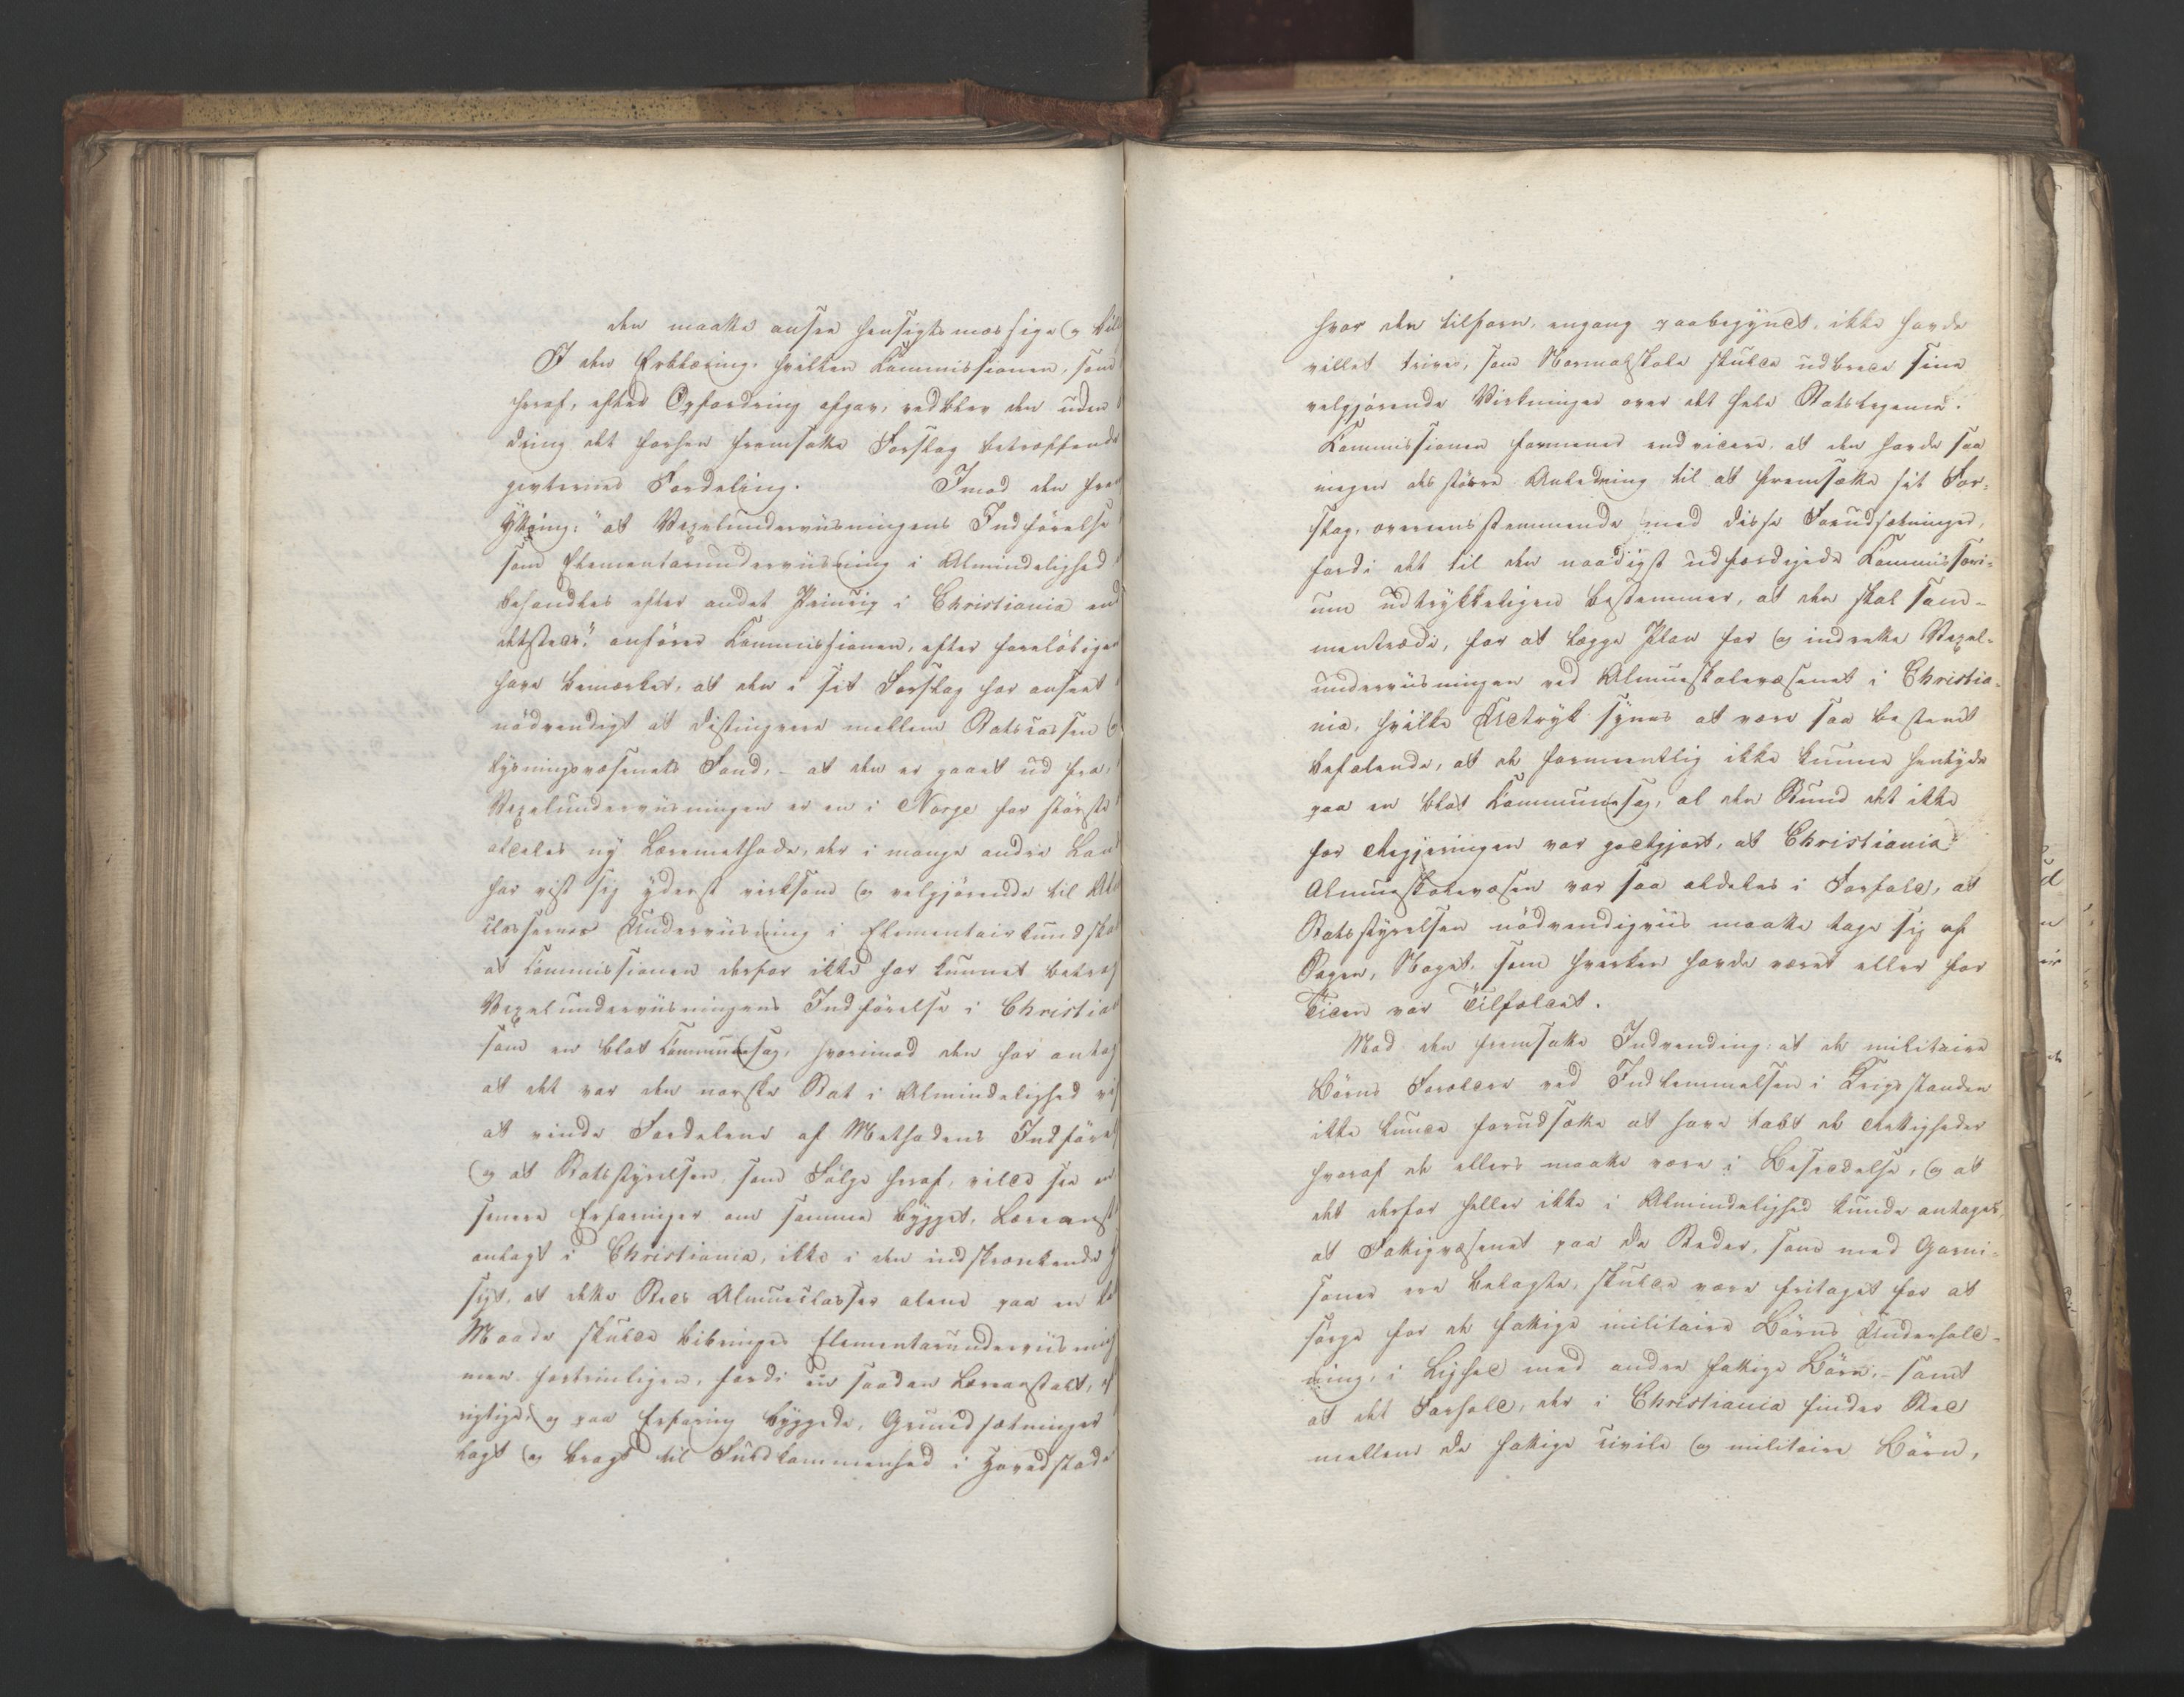 den maatte ansee hensigtsmæssige og bil
I den Erklæring, hvilken Kommissionen, som
heraf, efter Opfordring afgav, vedblev den uden
dring det forhen fremsatte Forslag betræffende
givternes Fordeling. Imod den frem
Yttring: "at Vexelunderviisningens Indførelse
som Elementarunderviisning i Almindelighed
behandles efter andet Princip i Christiania end
detsteds" anfører Kommissionen, efter foreløbigen
have bemærket, at den i sit Forslag har anseet
nødvendigt at distingvere mellem Statscassen og
lysningsvæsenets Fond, - at den er gaaet ud fra,
Vexelunderviisningen er en i Norge for største
aldeles ny Læremethode, der i mange andre Lan
har vist sig yderst virksom og velgjørende til Al
classernes Underviisning i Elementairkundska
at Commissionen derfor ikke har kunnet betrag
Vexelunderviisningens Indførelse i Christia
som en blot Communesag, hvorimod den har antag
at det var den norske Stat i Almindelighed vig
at vinde Fordelene af Methodens Indførel
og at Statsstyrelsen, som Følge heraf, vilde see en
senere Erfaringer om samme bygget, Læreanst
anlagt i Christiania, ikke i den indskrænkende H
sigt, at dette Steds Almueclasser alene paa en le
Maade skulde bibringes Elementarunderviisning
men fortrinligen, fordi en saadan Læreanstalt, ef
rigtige, og paa Erfaring byggede, Grundsætninger
lagt og bragt til Fuldkommenhed i Hovedstade
hvor den tilforn, engang paabegyndt, ikke havde
villet trives, som Normalskole skulde udbrede sine
velgjørende Virkninger over det hele Statslegeme.
Kommissionen formener endvidere, at den havde saa
megen desstørre Anledning til at fremsætte sit For-
slag, overeensstemmende med disse Forudsætninger,
fordi det til den naadigst udfærdigede Kommissori-
um udtrykkeligen bestemmer, at den skal sam-
mentræde, for at lægge Plan for og indrette Vexel-
underviisningen ved Almueskolevæsenet i Christia-
nia, hvilke Udtryk synes at være saa bestemt
befalende, at de formeentlig ikke kunne hentyde
paa en blot Communesag, al den Stund det ikke
for Regjeringen var godtgjort, at Christiania
Almueskolevæsen var saa aldeles i Forfald, at
Statsstyrelsen nødvendigviis maatte tage sig af
Sagen, Noget, som hverken havde været eller for
Tiden var Tilfældet.
Mod den fremsatte Indvending: at de militaire
Børns Forældre ved Indlemmelsen i Krigsstanden
ikke kunde forudsætte at have tabt de Rettigheder
hvoraf de ellers maatte være i Besiddelse, og at
det derfor heller ikke i Almindelighed kunde antages,
at Fattigvæsenet paa de Steder, som med Garni-
soner ere belagte, skulde være fritaget for at
sørge for de fattige militaire Børns Underhold-
ning, i Liighed med andre fattige Børn, - samt
at det Forhold, der i Christiania finder Sted
mellem de fattige civile og militaire Børn,